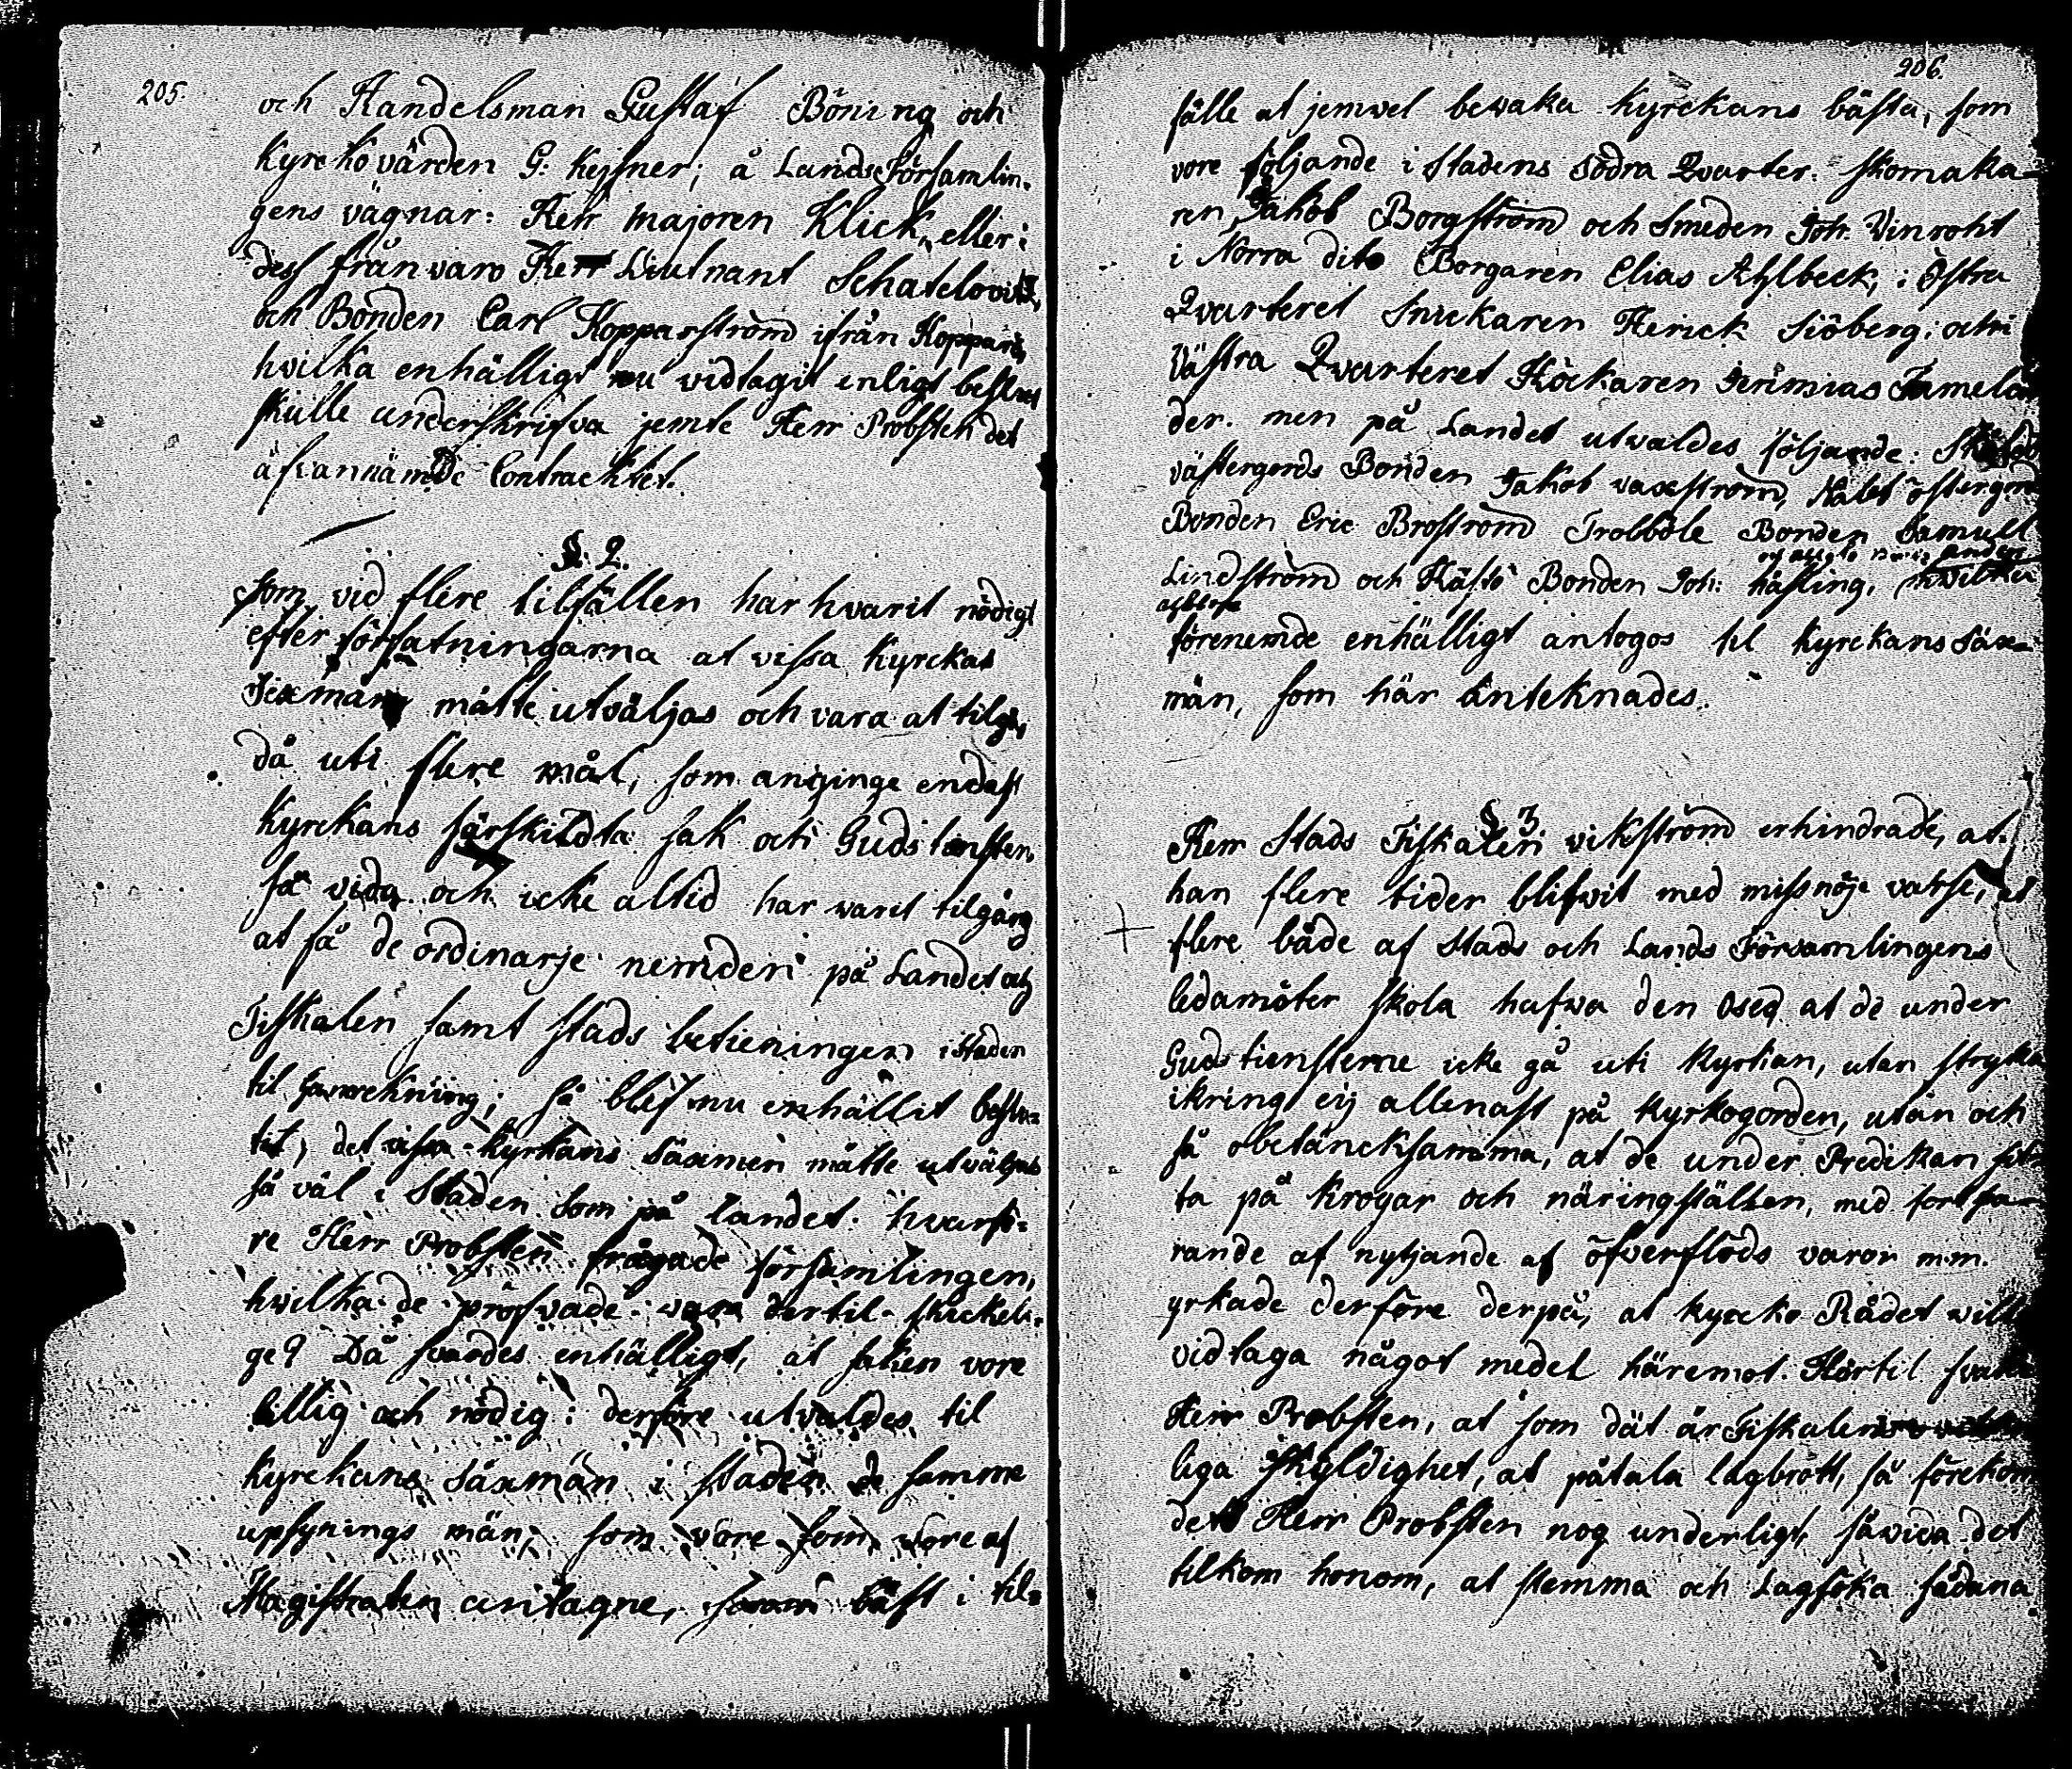 205.
och Handelsman Gustaf Böning och
Kyrckovärden G: Keisner; å Lands Församlin-
gens vägnar: Herr Majoren Klick, eller i
dess frånvaro Herr Lieutnant Schatelovitz,
och Bonden Carl Kopparström ifrån Kopparö,
hvilka enhälligt nu vidtagit enligt beslut
skulle underskrifva jemte Herr Probsten det
äfvannämde Contracktet.
§. 2.
Som vid flere tilfällen har hvarit nödigt
efter författningarna at vissa Kyrckas
Sexmän måtte utväljas och vara at tilgå,
då uti flere mål, som anginge endast
Kyrckans särskildta sak och Gudstiensten,
så vida och icke altid har warit tilgång
at få de ordinarje nemden på Landet och
Fiskalen samt stads betieningen i Staden
til; så blef nu enhällit beslu-
tit, det vissa Kyrkans Säxmen måtte utväljas
så väl i Staden som på landet. hvarfö-
re Herr Probsten frågade församlingen,
hwilka de pröfvade vara dertil skickeli-
ge? Då svardes enhälligt, at saken vore
billig och nödig: derföre utvaldes til
Kyrckans säxmän i staden de samme
upsynings män, som vore som vore af
Magistraten antagne, bäst i til-
206.
fälle at jemwel bewaka Kyrckans bästa, som
vore följande i Stadens södra Qvarter. Skomaka-
ren Jakob Borgström och Smeden Joh: Vinroht
i Norra dito Borgaren Elias Ahlbeck, i Östra
Qvarteret Snickaren Herick Siöberg; och i
Västra Qvarteret Hökaren Jerimias Tamelan
der. men på Landet utvaldes följande:
västergords Bonden Jakob vaxström, östergords
Bonden Eric Broström Trolböle Bonden Samuel
Lindström och Hästö Bonden Joh: hästing,
förenemde enhälligt antogos til Kyrckans Säx-
män, som här anteknades.
§ 3
Herr Stads Fiskalen vikström erhindrade, at
han flere tider blifwit med missnöje varse, at
flere både af Stads och Lands Församlingens
ledamöter skola hafwa den osed at de under
Gudstiensterne icke gå uti Kyrkan, utan stryka
ikring eij allenast på Kyrkogorden, utan och
så obetäncksamma, at de under Predikan sit-
ta på Krogar och näringställen, med fortfa-
rande af nytjande af öfverflöds varor m:m.
yrkade derföre derpå, at kyrcko Rådet wille
vidtaga något medel häremot. Härtil svarade
Herr Probsten, at som dät är Fiskalens
liga skyldighet, at påtala lagbrott, så förekom
det Herr Probsten nog underligt, såvida det
tilkom honom, at stemma och Lagföka sådana